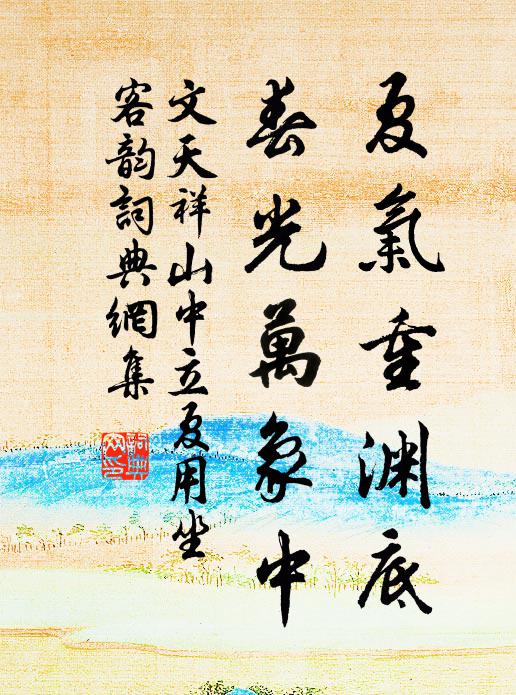 夏氣重淵底
春光萬象中
文天祥山中立夏用坐
客韵詞典網集